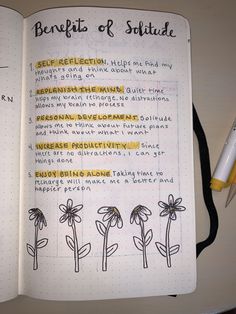 Benefits of Solitude
1. SELF REFLECTION. Helps me find my
thoughts and think about what
what's going on
2. REPLENISH THE MIND. Quiet time
helps my brain recharge. No distractions
allows my brain to process
3. PERSONAL DEVELOPMENT. Solitude
allows me to think about future plans
and think about what I want
4. INCREASE PRODUCTIVITY. Since
there are no distractions, I can get
things done
5. ENJOY BEING ALONE. Taking time to
recharge will make me a better and
happier person